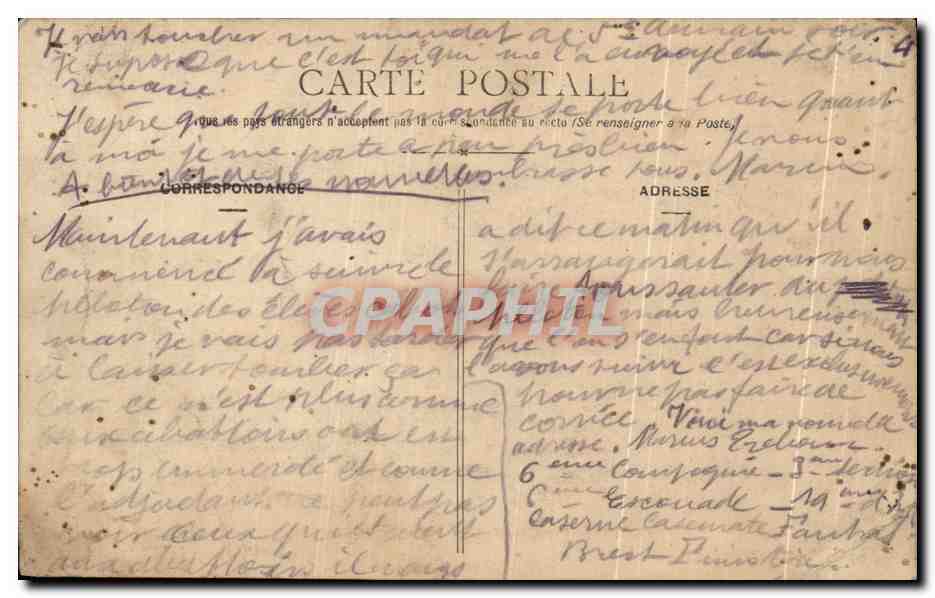 toucher un mandat de 5
Je suppose que c'est toi qui me l'a envoyé
semaine.
CARTE POSTALE
J'espère que tout le monde se porte bien quant
Tous les pays étrangers n'acceptent pas la correspondance au recto (Se renseigner à la Poste)
à moi je me porte à peu près bien. Je vous
A bientôt des nouvelles. embrasse tous. Marcus.
CORRESPONDANCE
ADRESSE
Maintenant j'avais
commencé à suivre le
peloton des Elèves
mais je vais pas tarder
à laisser tomber ça
car ce n'est plus comme
aux abattoirs on est
trop emmerdé et comme
l'adjudant ne peut pas
voir ceux qui étaient
aux abattoirs il nous
a dit ce matin qu'il
s'arrangerait pour nous
faire tous sauter du
peloton mais heureusement
que l'on s'en fout car si nous
l'avons suivi c'est exclusivement
pour ne pas faire de
corvée. Voici ma nouvelle
adresse. Marius
6ème Compagnie - 3ème Section
Escouade - 19ème
Caserne Casemate Fautras
Brest Finistère
CPAPHIL